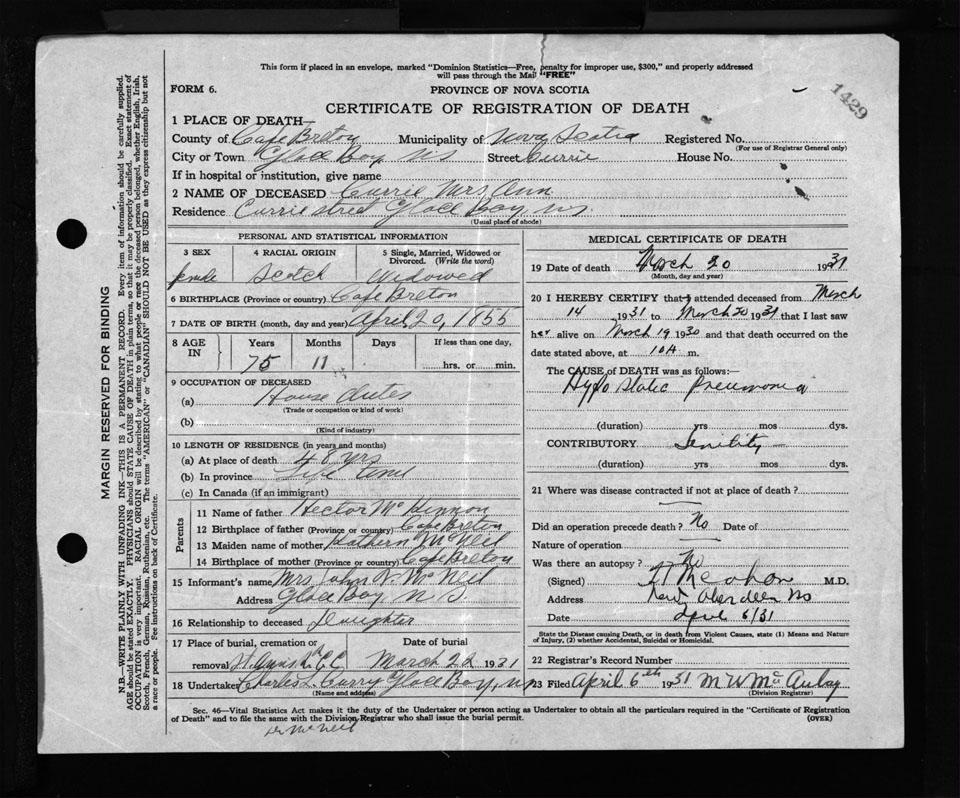 This form if placed in an envelope, marked "Dominion Statistics—Free, penalty for improper use, $300," and properly addressed
will pass through the Mail "FREE"
FORM 6.
PROVINCE OF NOVA SCOTIA
1429
CERTIFICATE OF REGISTRATION OF DEATH
1 PLACE OF DEATH—
County of Cape Breton Municipality of Nova Scotia Registered No.
(For use of Registrar General only)
City or Town Glace Bay NS Street Currie House No.
If in hospital or institution, give name
2 NAME OF DECEASED Currie Mrs Ann
Residence Currie street Glace Bay, NS.
(Usual place of abode)
PERSONAL AND STATISTICAL INFORMATION
3 SEX 4 RACIAL ORIGIN 5 Single, Married, Widowed or Divorced. (Write the word)
female Scotch Widowed
6 BIRTHPLACE (Province or country) Cape Breton
7 DATE OF BIRTH (month, day and year) April 20, 1855
8 AGE IN Years Months Days If less than one day,
75 11 hrs. or min.
9 OCCUPATION OF DECEASED
(a) House dutes
(Trade or occupation or kind of work)
(b)
(Kind of industry)
10 LENGTH OF RESIDENCE (in years and months)
(a) At place of death 48 yrs
(b) In province Life
(c) In Canada (if an immigrant)
Parents
11 Name of father Hector McKinnon
12 Birthplace of father (Province or country) Cape Breton
13 Maiden name of mother Kathern McNeil
14 Birthplace of mother (Province or country) Cape Breton
15 Informant's name Mrs John N. McNeil
Address Glace Bay N S.
16 Relationship to deceased Daughter
17 Place of burial, cremation or removal Date of burial
March 22 1931
18 Undertaker Charles L. Curry Glace Bay, NS
(Name and address)
MEDICAL CERTIFICATE OF DEATH
19 Date of death March 20 1931
(Month, day and year)
20 I HEREBY CERTIFY that I attended deceased from March
14 1931 to March 20 1931 that I last saw
her alive on March 19 1930 and that death occurred on
date stated above, at 10 A m.
The CAUSE OF DEATH was as follows:—
Hypo static Pneumonia
(duration) yrs mos dys.
CONTRIBUTORY Senility
(duration) yrs mos dys.
21 Where was disease contracted if not at place of death?
Did an operation precede death? No Date of
Nature of operation
Was there an autopsy? No
(Signed) M.D.
Address New Aberdeen NS
Date April 6/31
State the Disease causing Death, or in death from Violent Causes, state (1) Means and Nature
of Injury, (2) whether Accidental, Suicidal or Homicidal.
22 Registrar's Record Number
23 Filed April 6th 1931 M W McAulay
(Division Registrar)
Sec. 46—Vital Statistics Act makes it the duty of the Undertaker or person acting as Undertaker to obtain all the particulars required in the "Certificate of Registration
of Death" and to file the same with the Division Registrar who shall issue the burial permit.
(OVER)
Dr McNeil
MARGIN RESERVED FOR BINDING
N.B.—WRITE PLAINLY WITH UNFADING INK—THIS IS A PERMANENT RECORD. Every item of information should be carefully supplied.
AGE should be stated EXACTLY. PHYSICIANS should STATE CAUSE OF DEATH in plain terms, so that it may be properly classified. Exact statement of
OCCUPATION is very important. RACIAL ORIGIN will be described by stating to what people or race the deceased person belonged, whether English, Irish,
Scotch, French, German, Russian, Ruthenian, etc. The terms "AMERICAN" or "CANADIAN" SHOULD NOT BE USED as they express citizenship but not
a race or people. Fee instructions on back of Certificate.